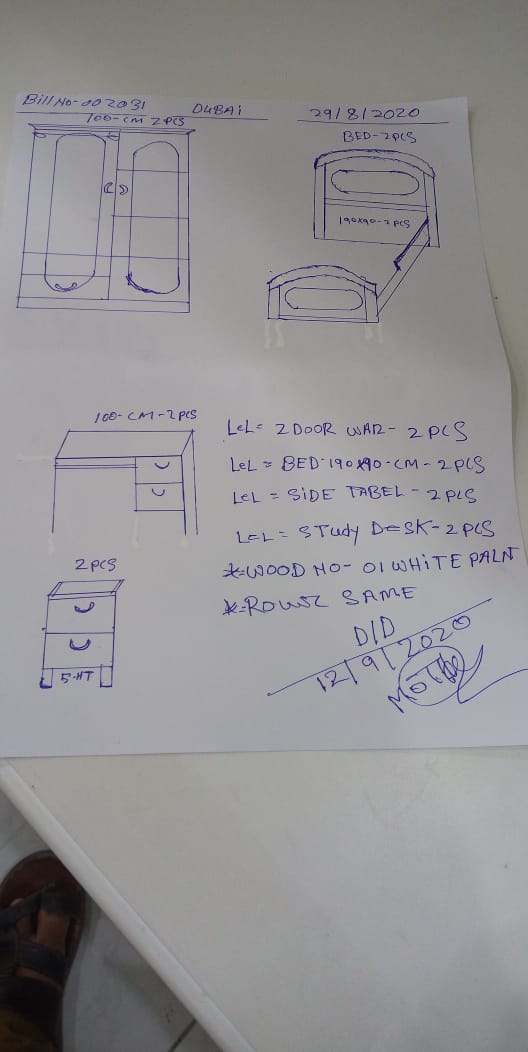 Bill No-002031 DUBAi 29/8/2020
100-CM 2PCS
BED-2PCS
190x90-2PCS
100-CM-2PCS
LeL= 2DOOR WAR- 2PCS
LeL= BED-190x90-CM-2PCS
LeL= SiDE TABEL-2PCS
LeL= STudy DESK-2PCS
*=WOOD NO-01 WHiTE PALN
2PCS
SAME
5-HT
D/D
12/9/2020